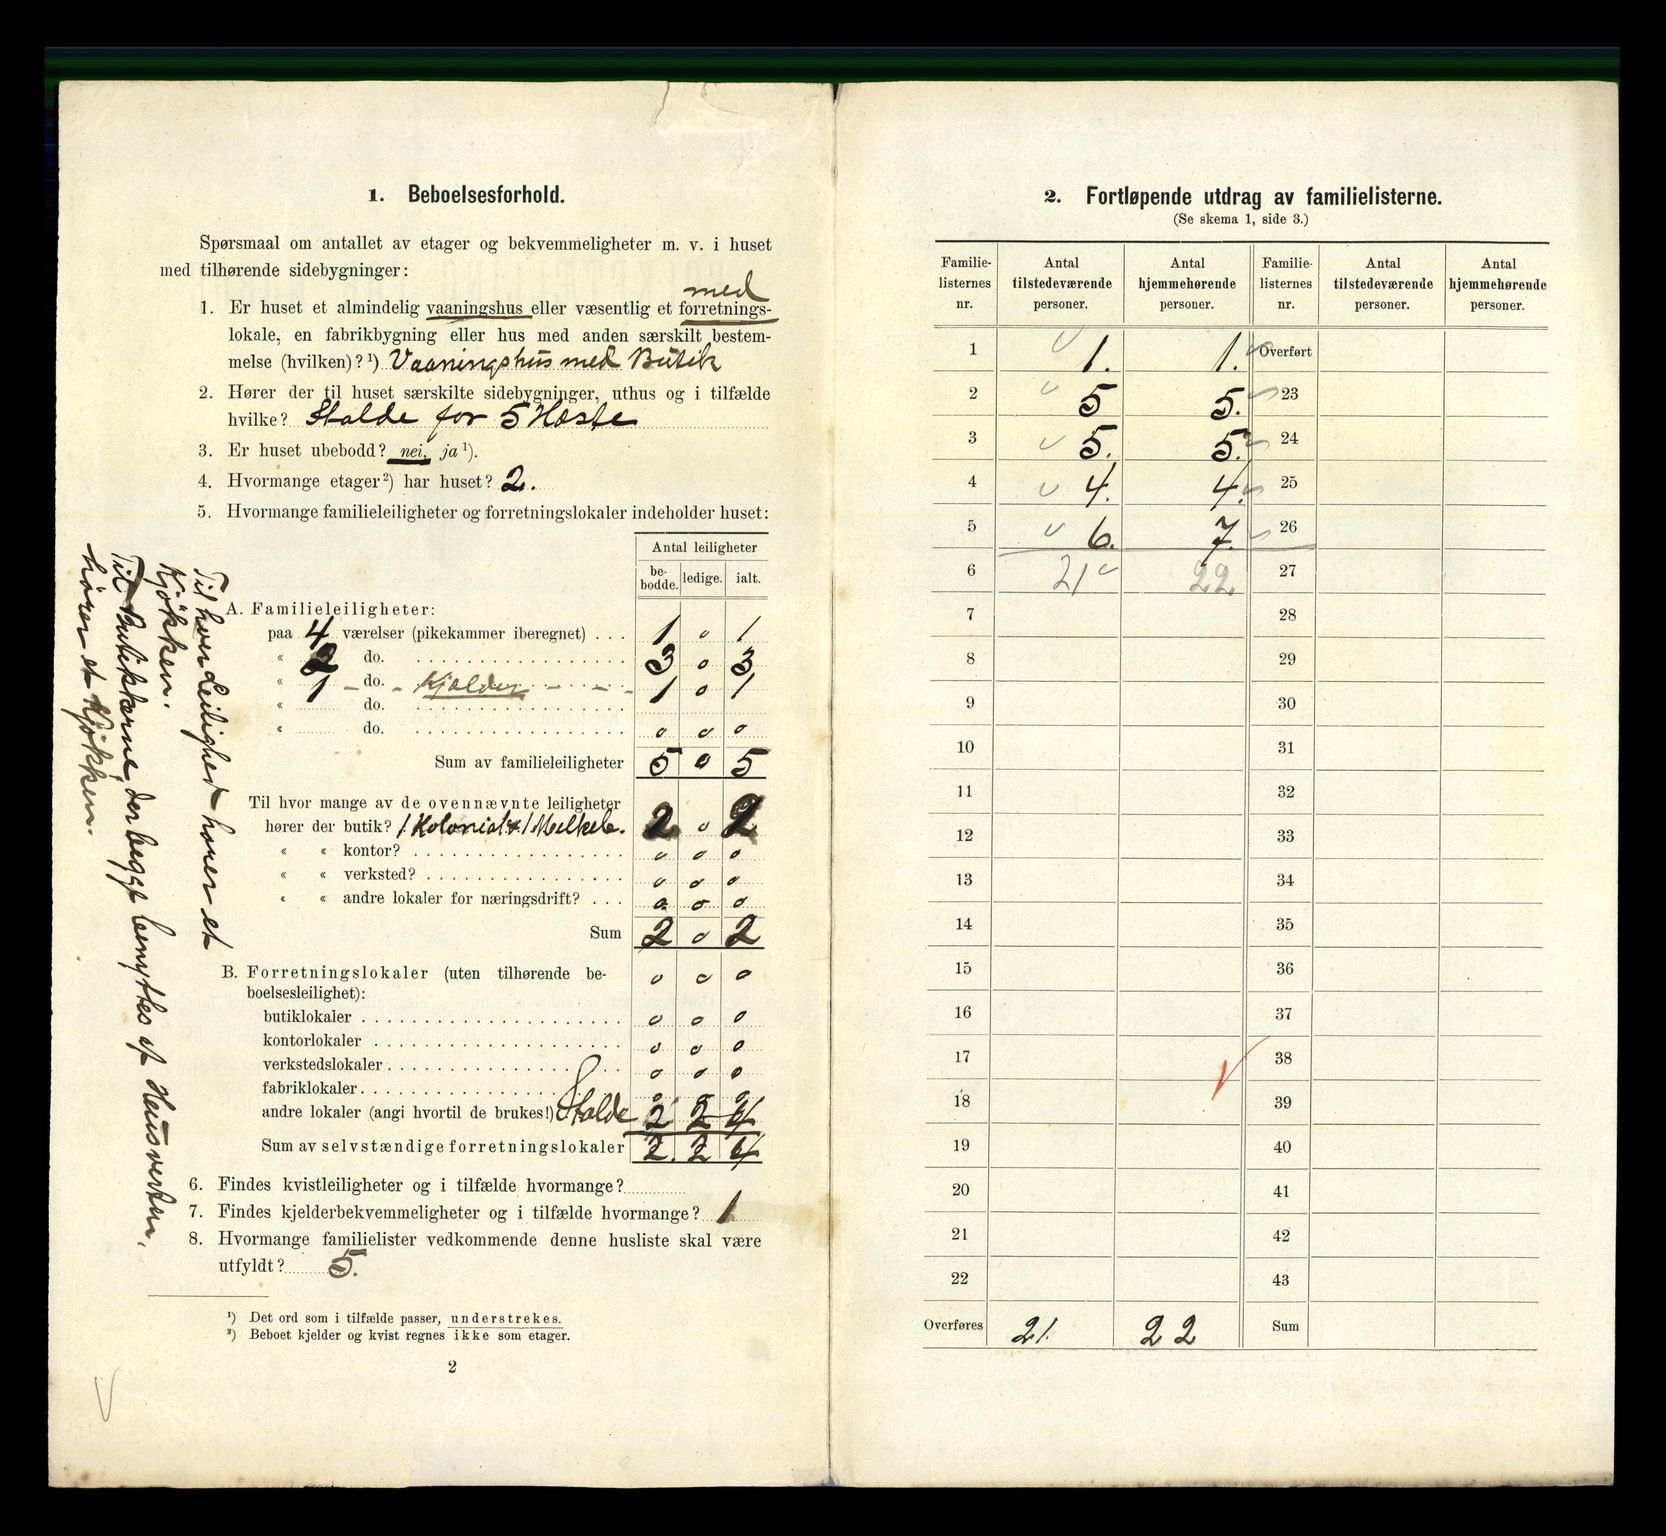 1. Beboelsesforhold.
Spørsmaal om antallet av etager og bekvemmeligheter m. v. i huset
med tilhørende sidebygninger:
med
1. Er huset et almindelig vaaningshus eller væsentlig et forretnings-
lokale, en fabrikbygning eller hus med anden særskilt bestem-
melse (hvilken)?¹) Vaaningshus med Butik
2. Hører der til huset særskilte sidebygninger, uthus og i tilfælde
hvilke? Stalde for 5 Heste
3. Er huset ubebodd? nei, ja¹).
4. Hvormange etager²) har huset? 2.
5. Hvormange familieleiligheter og forretningslokaler indeholder huset:
Antal leiligheter
be-bodde. ledige. ialt.
A. Familieleiligheter:
paa 4 værelser (pikekammer iberegnet) . . . 1 0 1
« 2 do. 3 0 3
« 1 - do. - Kjælder - - - 1 0 1
« do.
« do. 0 0 0
Sum av familieleiligheter 5 0 5
Til hvor mange av de ovennævnte leiligheter
hører der butik? 1 Kolonial & 1 Melkeb. 2 0 2
« « kontor? 0 0 0
« « verksted? 0 0 0
« « andre lokaler for næringsdrift? . . . 0 0 0
Sum 2 0 2
B. Forretningslokaler (uten tilhørende be- 0 0 0
boelsesleilighet):
butiklokaler 0 0 0
kontorlokaler 0 0 0
verkstedslokaler 0 0 0
fabriklokaler 0 0 0
andre lokaler (angi hvortil de brukes!) Stalde 2 2 4
Sum av selvstændige forretningslokaler 2. 2 4
6. Findes kvistleiligheter og i tilfælde hvormange?
7. Findes kjelderbekvemmeligheter og i tilfælde hvormange? 1
8. Hvormange familielister vedkommende denne husliste skal være
utfyldt? 5.
¹) Det ord som i tilfælde passer, understrekes.
²) Beboet kjelder og kvist regnes ikke som etager.
2
Til hver Leilighed hører et
Kjökken.
Til Butikkerne, der begge benyttes af Husverten,
hører et Kjökken.
2. Fortløpende utdrag av familielisterne.
(Se skema 1, side 3.)
Familie-listernes nr. Antal tilstedeværende personer. Antal hjemmehørende personer. Familie-listernes nr. Antal tilstedeværende personer. Antal hjemmehørende personer.
1 1. 1. Overført
2 5 5. 23
3 5. 5. 24
4 4. 4. 25
5 6. 7. 26
6 21 22 27
7 28
8 29
9 30
10 31
11 32
12 33
13 34
14 35
15 36
16 37
17 38
18 39
19 40
20 41
21 42
22 43
Overføres 21. 22 Sum